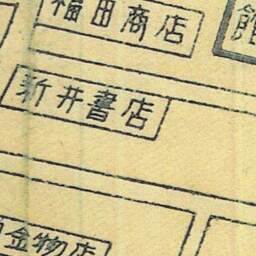 福田商店
館
新井書店
金物店